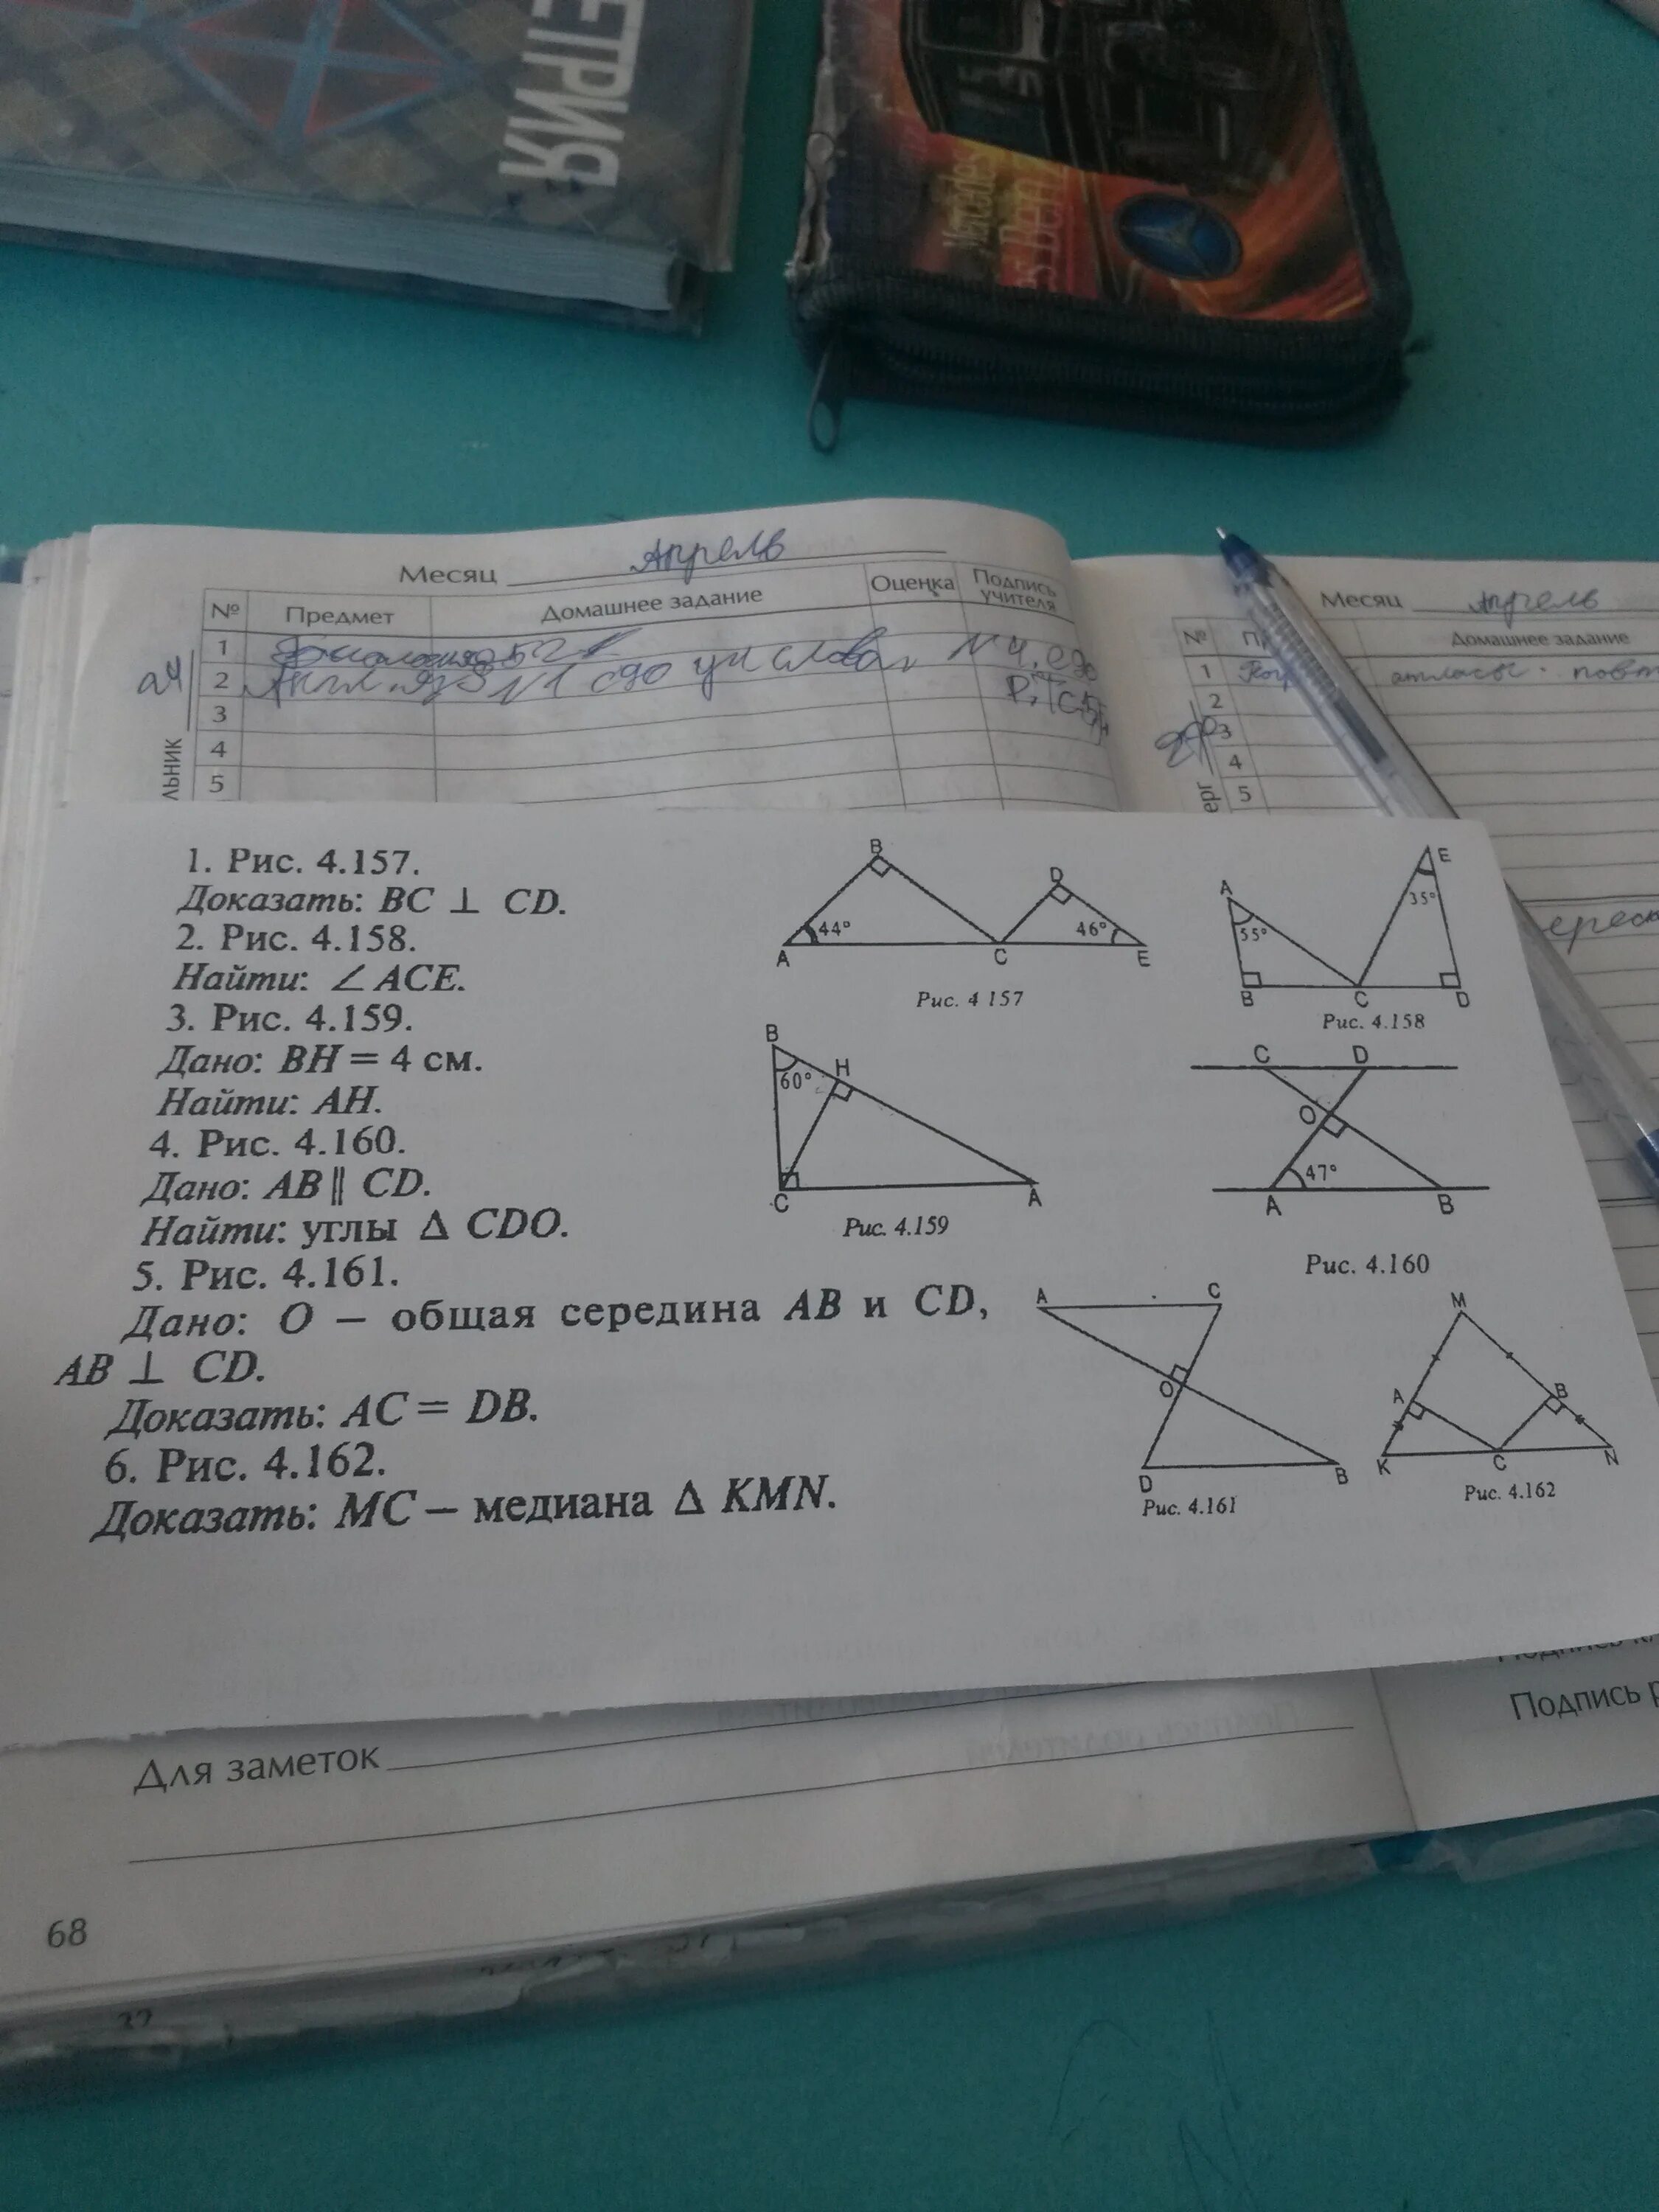 ЕТРИЯ
Mercedes
Benz
Месяц Апрель
№ Предмет Домашнее задание Оценка Подпись учителя
1
2
3
4
5
Месяц Апрель
№ Домашнее задание
1 атласы. повт
2
3
4
5
1. Рис. 4.157.
Доказать: BC ⊥ CD.
2. Рис. 4.158.
Найти: ∠ ACE.
3. Рис. 4.159.
Дано: BH = 4 см.
Найти: AH.
4. Рис. 4.160.
Дано: AB ∥ CD.
Найти: углы Δ CDO.
5. Рис. 4.161.
Дано: O – общая середина AB и CD,
AB ⊥ CD.
Доказать: AC = DB.
6. Рис. 4.162.
Доказать: MC – медиана Δ KMN.
B D
44° 46°
A C E
Рис. 4 157
E
A 35°
55°
B C D
Рис. 4.158
B
60° H
C A
Рис. 4.159
C D
O
47°
A B
Рис. 4.160
A C
O
D B
Рис. 4.161
M
A B
K C N
Рис. 4.162
Для заметок
Подпись р
68